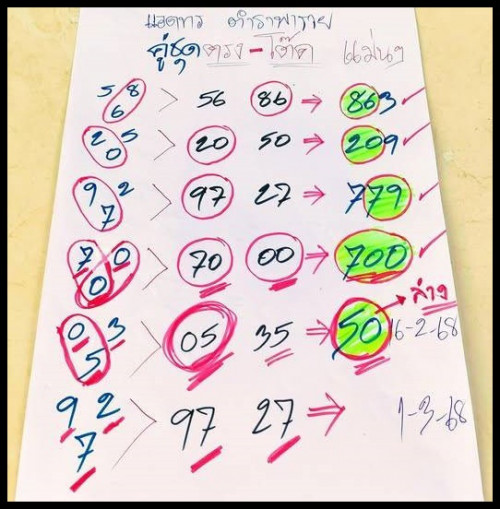 คู่ชุดตรง-โต๊ด แม่นๆ
5 8 6 > 56 86 → 863 ✓
2 5 0 > 20 50 → 209 ✓
9 2 7 > 97 27 → 779 ✓
7 0 0 > 70 00 → 700 ✓
→ ล่าง
0 3 5 > 05 35 ⇒ 50 16-2-68
9 2 7 > 97 27 ⇒ 1-3-68